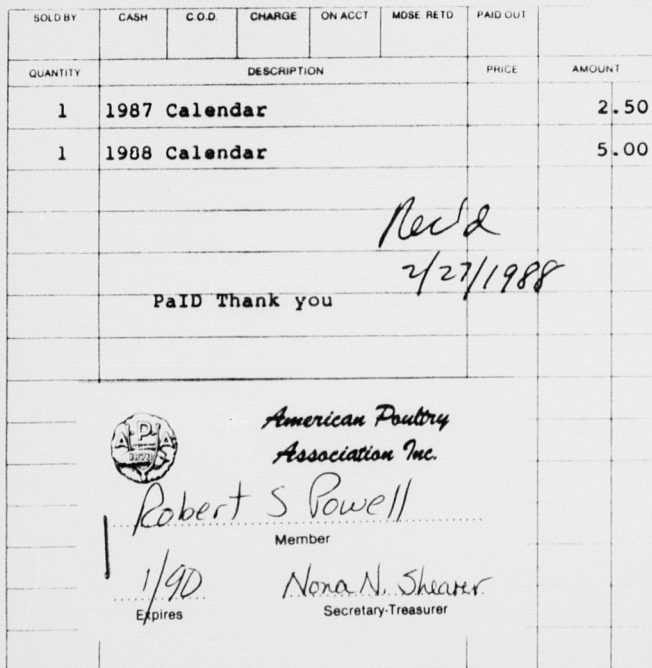 SOLD BY CASH C.O.D. CHARGE ON ACCT MDSE. RETD PAID OUT
QUANTITY DESCRIPTION PRICE AMOUNT
1 1987 Calendar 2.50
1 1988 Calendar 5.00
Rec'd
2/27/1988
PaID Thank you
American Poultry
Association Inc.
A.P.A.
Robert S Powell
Member
1/90 Nona N. Shearer
Expires Secretary-Treasurer